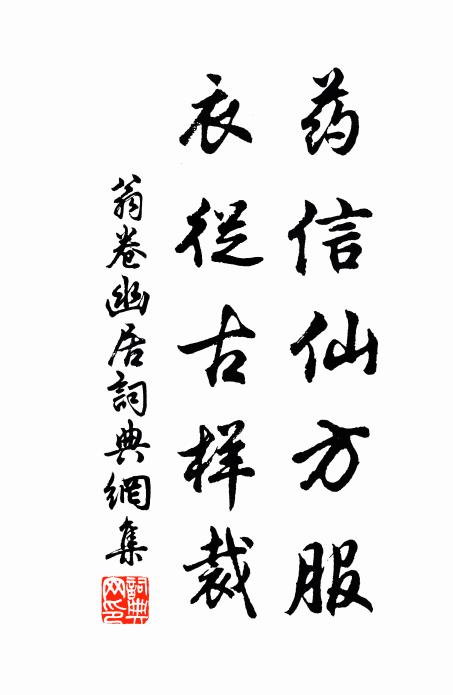 药信仙方服
衣從古样裁
翁卷幽居詞典網集
詞典网印